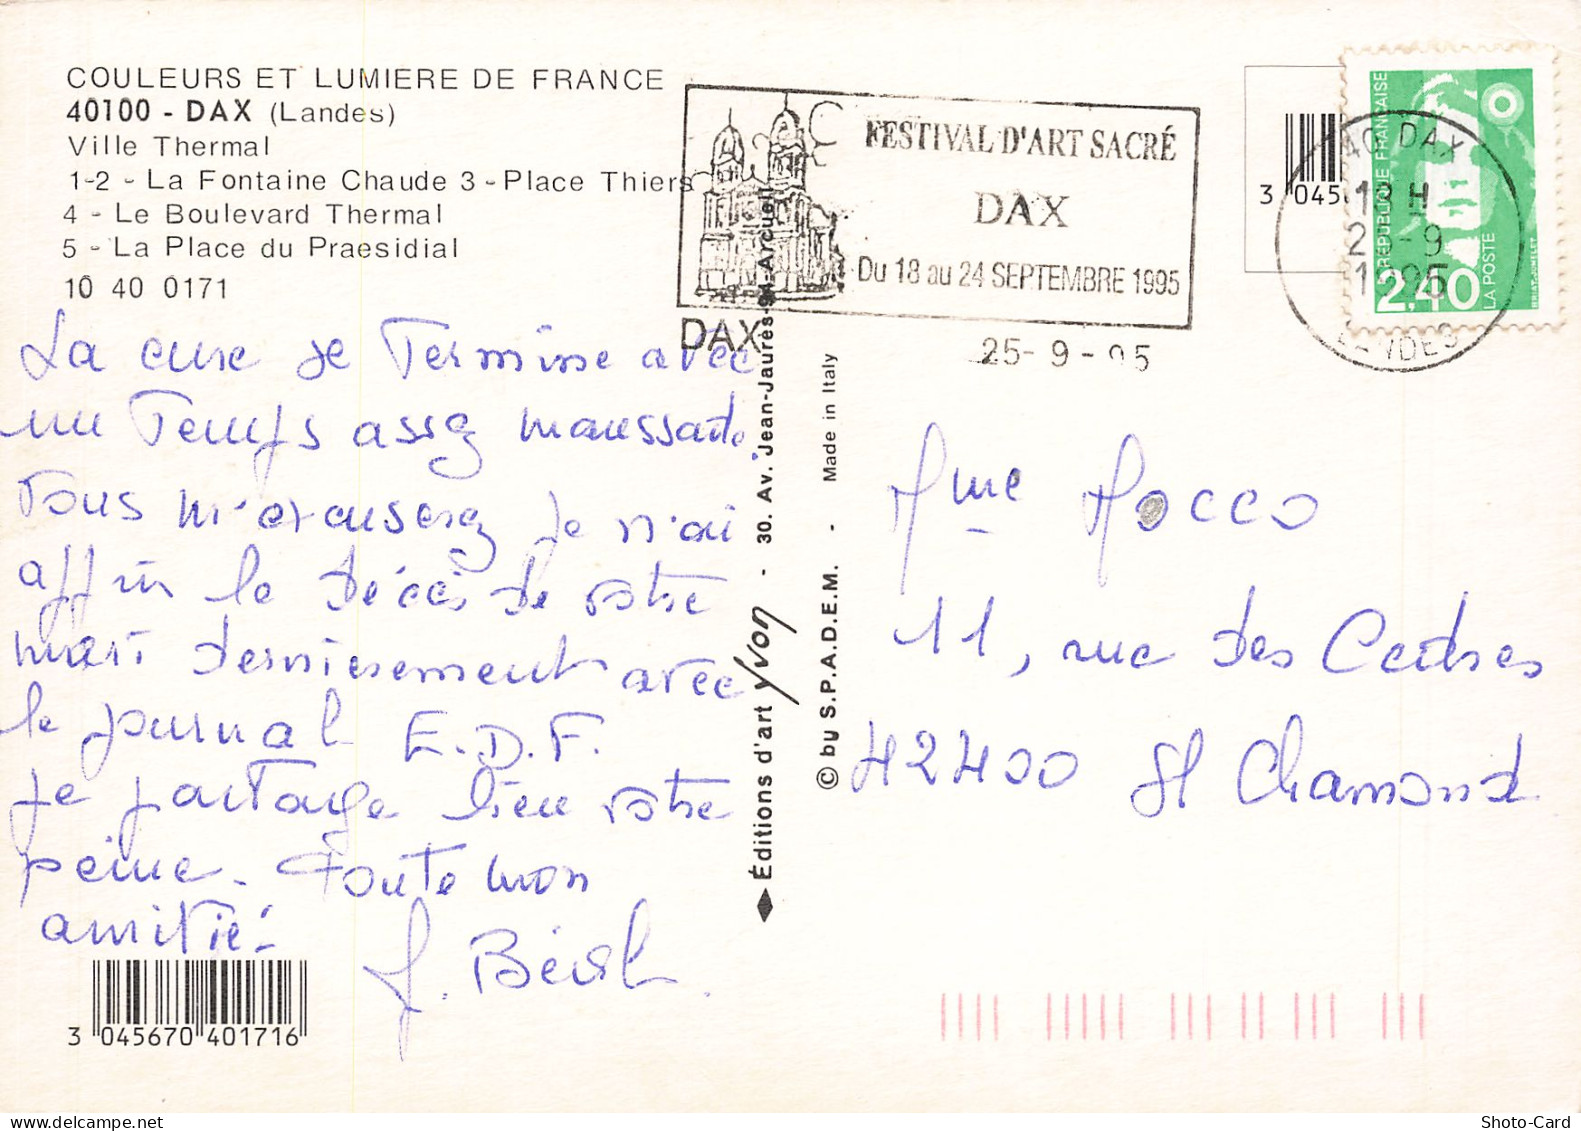 COULEURS ET LUMIERE DE FRANCE
40100 - DAX (Landes)
Ville Thermal
1-2 - La Fontaine Chaude 3 - Place Thiers
4 - Le Boulevard Thermal
5 - La Place du Praesidial
10 40 0171
La cure se termine avec
un temps assez maussade.
Vous m'excuserez je n'ai
appris le décès de votre
mari dernièrement avec
le journal E.D.F.
je partage bien votre
peine. Toute mon
amitié.
3 045670 401716
FESTIVAL D'ART SACRÉ
DAX
Du 18 au 24 SEPTEMBRE 1995
DAX
25-9-95
Éditions d'art Yvon - 30. Av. Jean-Jaurès-94-Arcueil
© by S.P.A.D.E.M. - Made in Italy
3 045
40 DAX
18 H
25-9
1995
LANDES
RÉPUBLIQUE FRANÇAISE
2,40
LA POSTE
BRIAT-JUMELET
Mme Mocco
11, rue des Cedres
42400 St Chamond
Shoto-Card